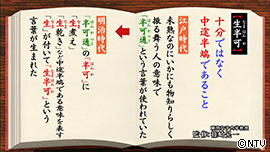 【生半可】
十分ではなく
中途半端であること
江戸時代
未熟なのにいかにも物知りらしく
振る舞う人の意味で
「半可通」という言葉が使われていた
明治時代
「半可通」の「半可」に
「生煮え」
「生乾き」など中途半端である意味を表す
「生」が付いて「生半可」という
言葉が生まれた
©NTV